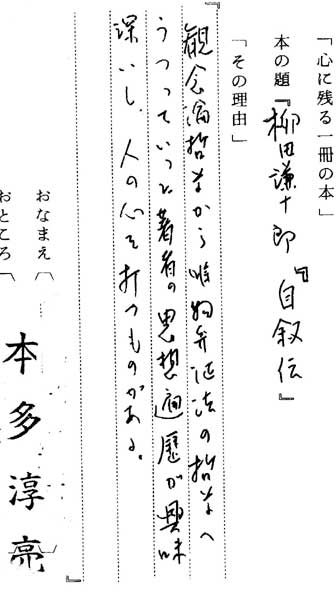 「心に残る一冊の本」
本の題『柳田謙十郎『自叙伝』
「その理由」
観念論哲学から唯物弁証法の哲学へ
うつっていった著者の思想遍歴が興味
深いし、人の心を打つものがある。
おなまえ
おところ
本多淳亮
』